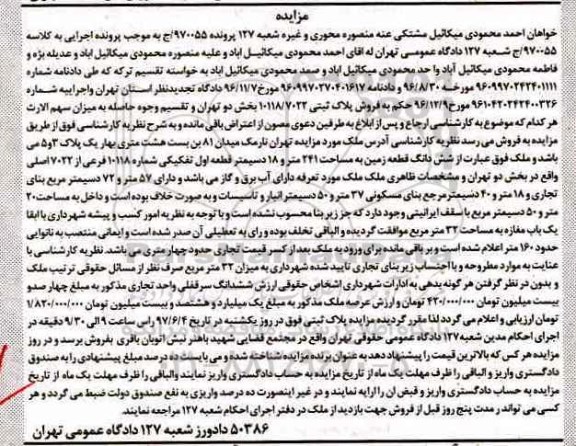 مزایده
خواهان احمد محمودی میکائیل مشتکی عنه منصوره محوری و غیره شعبه ۱۲۷ پرونده ۹۷۰۰۵۵/ج به موجب پرونده اجرایی به کلاسه
۹۷۰۰۵۵/ج شعبه ۱۲۷ دادگاه عمومی تهران له اقای احمد محمودی میکائیل اباد و علیه منصوره محمودی میکائیل اباد و عدیله بژه و
فاطمه محمودی میکائیل آباد وا حد محمودی میکائیل اباد و صمد محمودی میکائیل اباد به خواسته تقسیم ترکه که طی دادنامه شماره
۹۶۰۹۹۷۰۲۴۲۴۰۱۱۱۱ مورخه ۹۶/۸/۳۰ و دادنامه ۹۶۰۹۹۷۰۲۷۰۴۰۱۶۱۷ مورخ ۹۶/۱۱/۷ دادگاه تجدیدنظر استان تهران واجراییه شماره
۹۶۱۰۴۲۰۲۴۲۴۰۰۳۲۶ مورخ ۹۶/۱۲/۹ حکم به فروش پلاک ثبتی ۱۰۱۱۸/۷۰۲۲ بخش دو تهران و تقسیم وجوه حاصله به میزان سهم الارث
هر کدام که موضوع به کارشناسی ارجاع و پس از ابلاغ به طرفین دعوی مصون از اعتراض باقی مانده و به شرح نظریه کارشناسی فوق از طریق
مزایده به فروش می رسد نظریه کارشناسی آدرس ملک مورد مزایده تهران نارمک میدان ۸۱ بن بست هشت متری بهار یک پلاک ۳و۵ می
باشد و ملک فوق عبارت از شش دانگ قطعه زمین به مساحت ۲۴۱ متر و ۱۸ دسیمتر قطعه اول تفکیکی شماره ۱۰۱۱۸ فرعی از ۷۰۲۲ اصلی
واقع در بخش دو تهران و مشخصات ظاهری ملک ملک مورد تعرفه دارای آب برق و گاز می باشد و دارای ۵۷ متر و ۷۲ دسیمتر مربع بنای
تجاری و ۱۸ متر و ۴۰ دسیمترمرجع بنای مسکونی ۳۷ متر و ۵۰ دسیمتر انبار و تأسیسات و به صورت خلاف بوده است و داخل به مساحت ۲۰
متر و ۵۰ دسیمتر مربع با سقف ایرانیتی وجود دارد که جز زیر بنا محسوب نشده است و با توجه به نظریه امور کسب و پیشه شهرداری با ابقا
یک باب مغازه به مساحت ۳۲ متر مربع موافقت گردیده و الباقی تخلف بوده و رای به تعطیلی آن صدر شده است و ایمانی منتصب به نانوایی
حدود ۱۶۰ متر اعلام شده است و بر باقی مانده برای ورود به ملک بعد از کسر قیمت تجاری حدود چهار متری می باشد. نظریه کارشناسی با
عنایت به موارد مطروحه و با احتساب زیر بنای تجاری تایید شده شهرداری به میزان ۳۲ متر مربع صرف نظر از مسائل حقوقی ترتیب ملک
و بدون در نظر گرفتن هر گونه بدهی به ادارات شهرداری اشخاص حقوقی ارزش ششدانگ سرقفلی واحد تجاری مذکور به مبلغ چهار صدو
بیست میلیون تومان ۴۲۰/۰۰۰/۰۰۰ تومان و ارزش عرصه ملک مذکور به مبلغ یک میلیارد و هشتصد و بیست میلیون تومان ۱/۸۲۰/۰۰۰/۰۰۰
تومان ارزیابی و اعلام می گردد لذا مقرر گردیده مزایده پلاک ثبتی فوق در روز یکشنبه در تاریخ ۹۷/۶/۴ راس ساعت ۹ الی ۹/۳۰ دقیقه در
اجرای احکام مدین شعبه ۱۲۷ دادگاه عمومی حقوقی تهران واقع در مجتمع قضایی شهید باهنر نبش اتوبان باقری بفروش برسد و در روز
مزایده هر کس که بالاترین قیمت را پیشنهاد دهد به عنوان برنده مزایده شناخته شده و می بایست ده درصد مبلغ پیشنهادی را به صندوق
دادگستری واریز و الباقی را ظرف مهلت یک ماه از تاریخ مزایده به حساب دادگستری واریز نمایند والباقی را ظرف مهلت یک ماه از تاریخ
مزایده به حساب دادگستری واریز و قبض ان را ارایه نمایند و در غیر اینصورت ده درصد واریزی به نفع صندوق دولت ضبط می گردد و هر
کسی می تواند ر مدت پنج روز قبل از فروش جهت بازدید از ملک در دفتر اجرای احکام شعبه ۱۲۷ مراجعه نمایند.
۵۰۳۸۶ دادورز شعبه ۱۲۷ دادگاه عمومی تهران